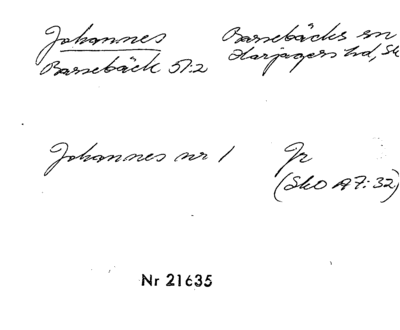 Johannes Barsebäcks sn
Barsebäck 51:2 Harjagers hd, Sk
Johannes nr 1 Jr
(Sko A7:32)
Nr 21635